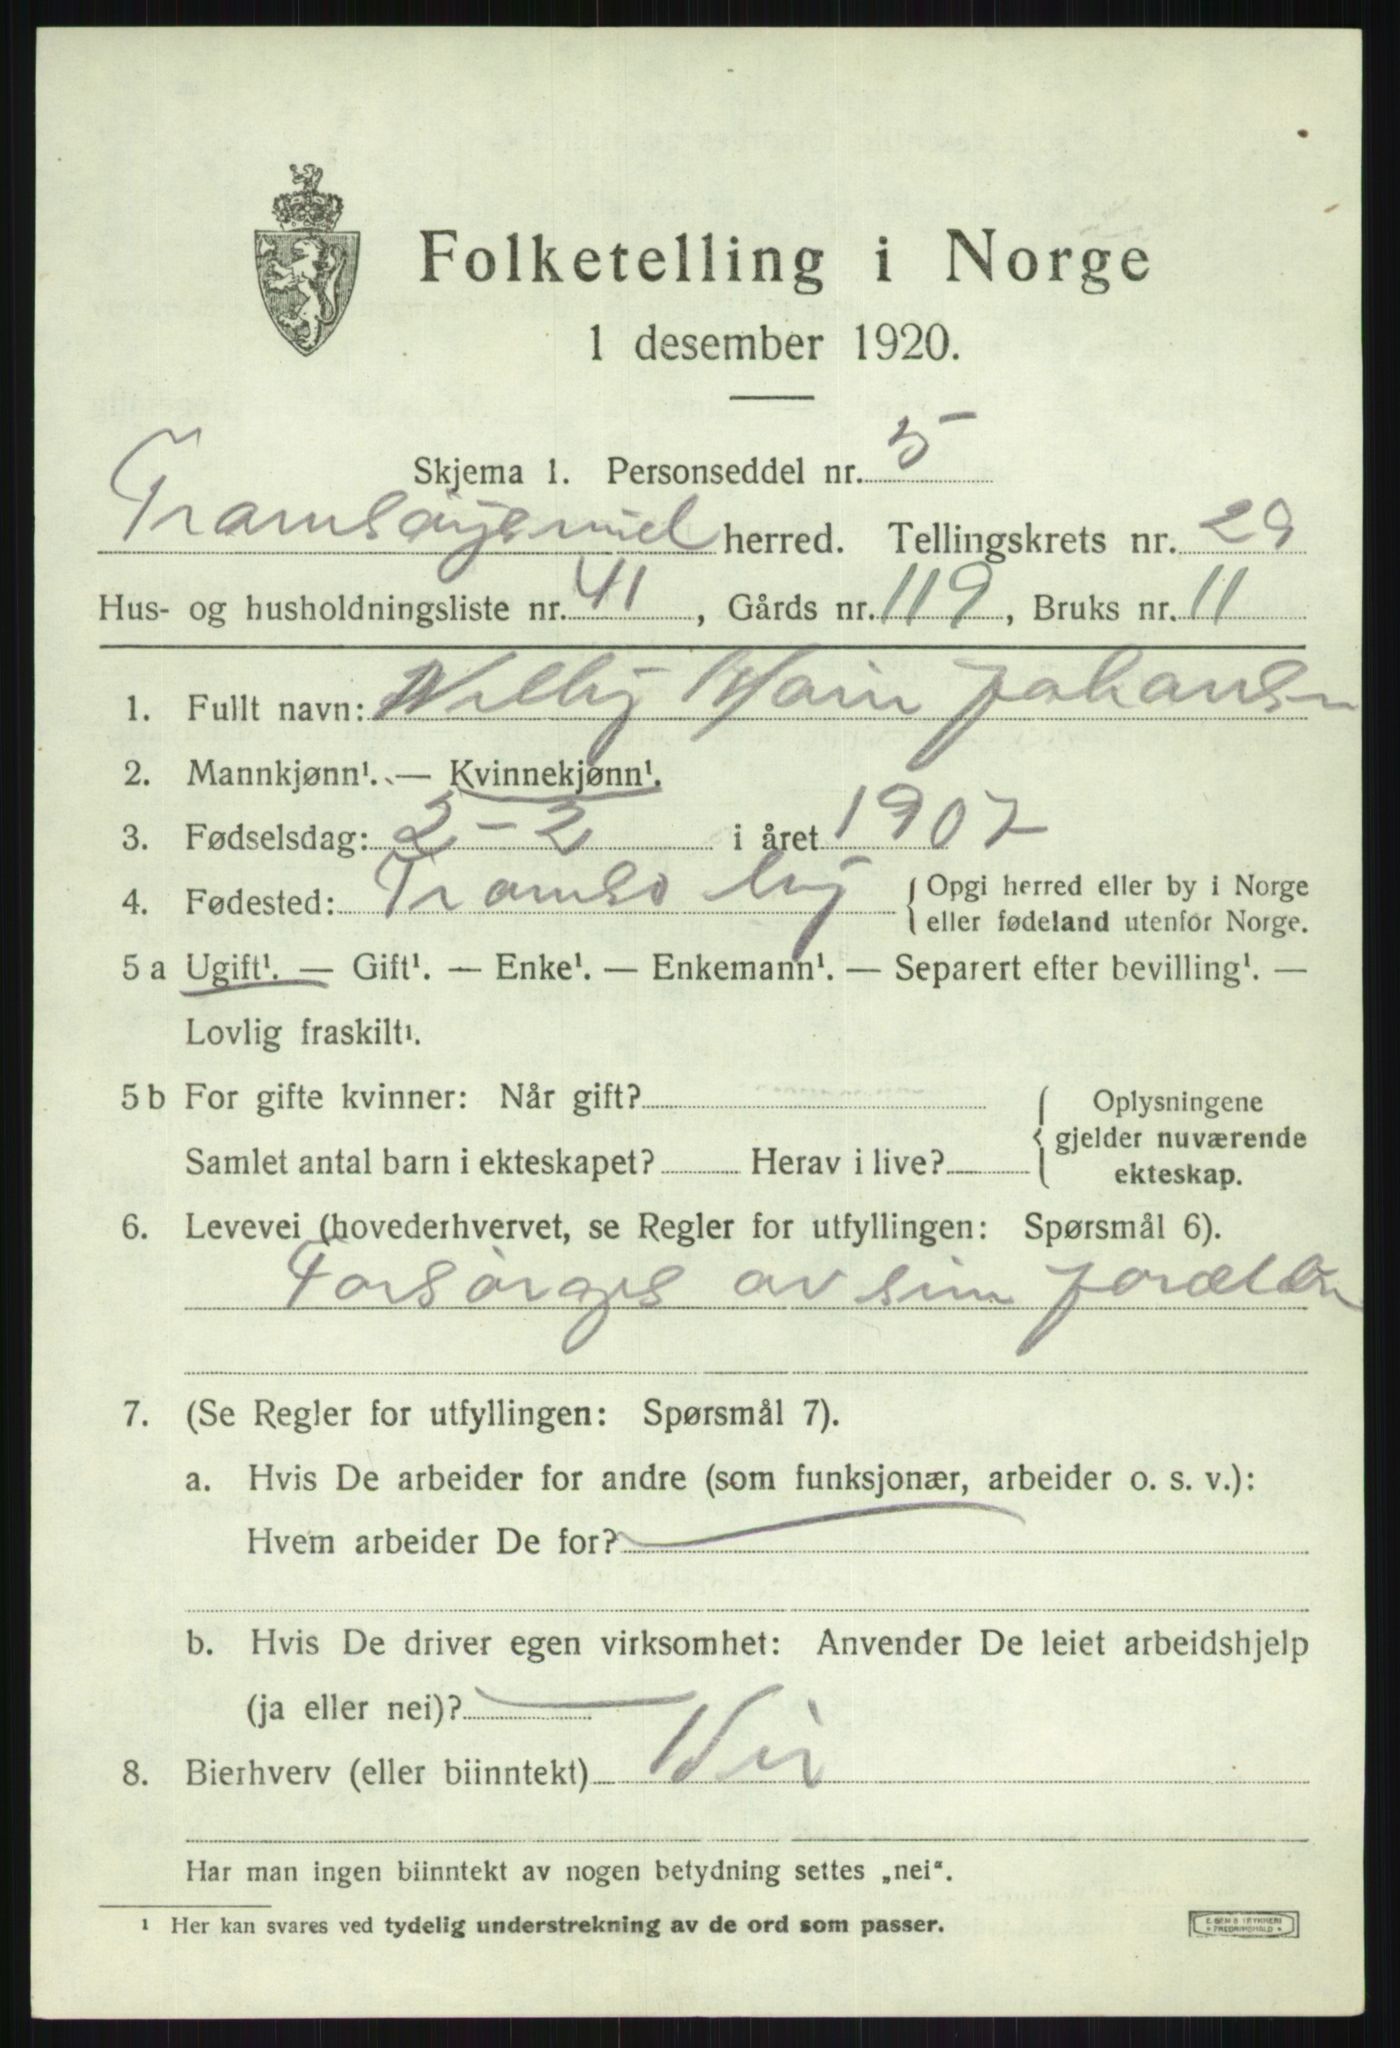 Folketelling i Norge
1 desember 1920.
Skjema 1. Personseddel nr. 5
Tromsøysund herred. Tellingskrets nr. 29
Hus- og husholdningsliste nr. 41, Gårds nr. 119, Bruks nr. 11
1. Fullt navn: Johansen
2. Mannkjønn¹. — Kvinnekjønn¹.
3. Fødselsdag: 2-2 i året 1907
4. Fødested: Tromsø by { Opgi herred eller by i Norge
eller fødeland utenfor Norge.
5 a Ugift¹. — Gift¹. — Enke¹. — Enkemann¹. — Separert efter bevilling¹. —
Lovlig fraskilt¹.
5 b For gifte kvinner: Når gift? { Oplysningene
gjelder nuværende
Samlet antal barn i ekteskapet? Herav i live?
ekteskap.
6. Levevei (hovederhvervet, se Regler for utfyllingen: Spørsmål 6).
Forsørges av sine
7. (Se Regler for utfyllingen: Spørsmål 7).
a. Hvis De arbeider for andre (som funksjonær, arbeider o. s. v.):
Hvem arbeider De for?
b. Hvis De driver egen virksomhet: Anvender De leiet arbeidshjelp
(ja eller nei)?
8. Bierhverv (eller biinntekt) Nei
Har man ingen biinntekt av nogen betydning settes „nei“.
¹ Her kan svares ved tydelig understrekning av de ord som passer.